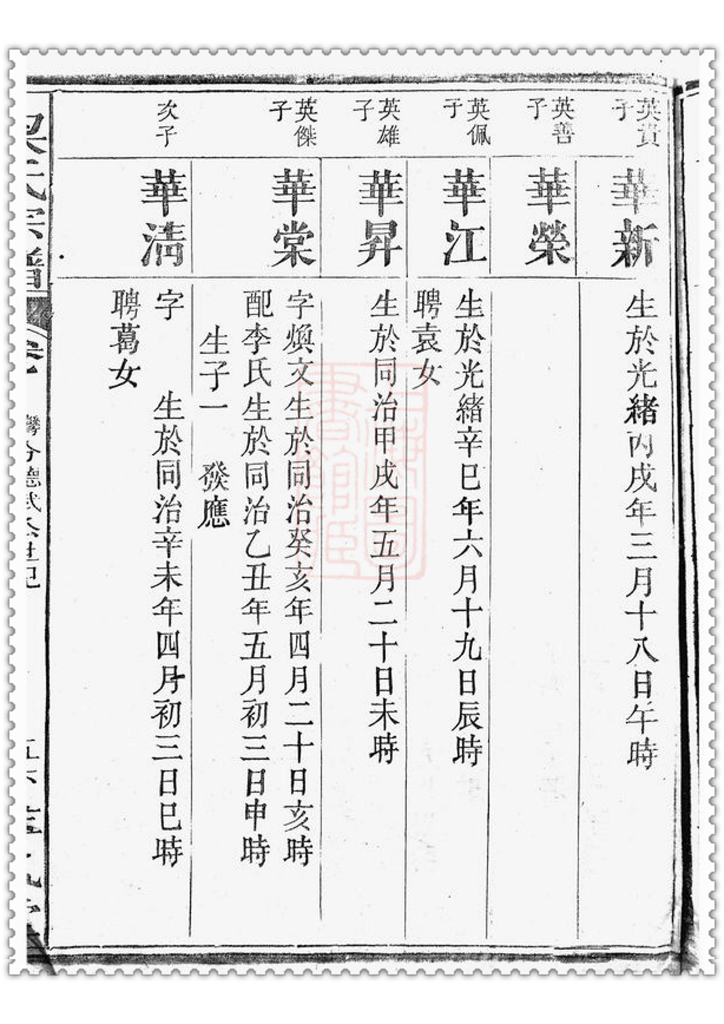 英貴子
華新
生於光緒丙戌年三月十八日午時
英善子
華榮
英佩子
華江
生於光緒辛巳年六月十九日辰時
聘袁女
英雄子
華昇
生於同治甲戌年五月二十日未時
英傑子
華棠
字煥文生於同治癸亥年四月二十日亥時
配李氏生於同治乙丑年五月初三日申時
生子一 發應
次子
華清
字 生於同治辛未年四月初三日巳時
聘葛女
氏宗譜
卷